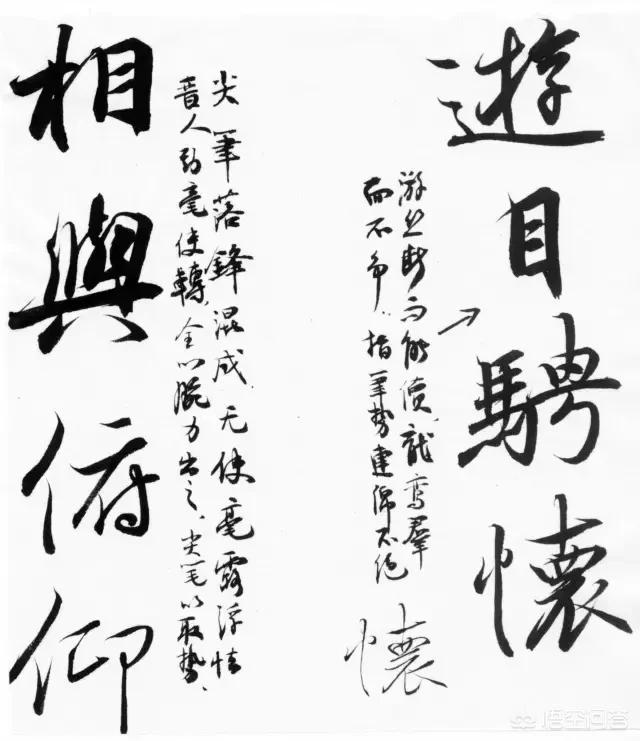 遊目騁懷
游丝断而能續,龍鸾羣
而不争..指筆势連绵不绝
懷
尖筆落鋒混成,无使毫露浮怯
晋人到毫使轉,全以腕力出之、尖笔以取势、
相與俯仰
悟空问答